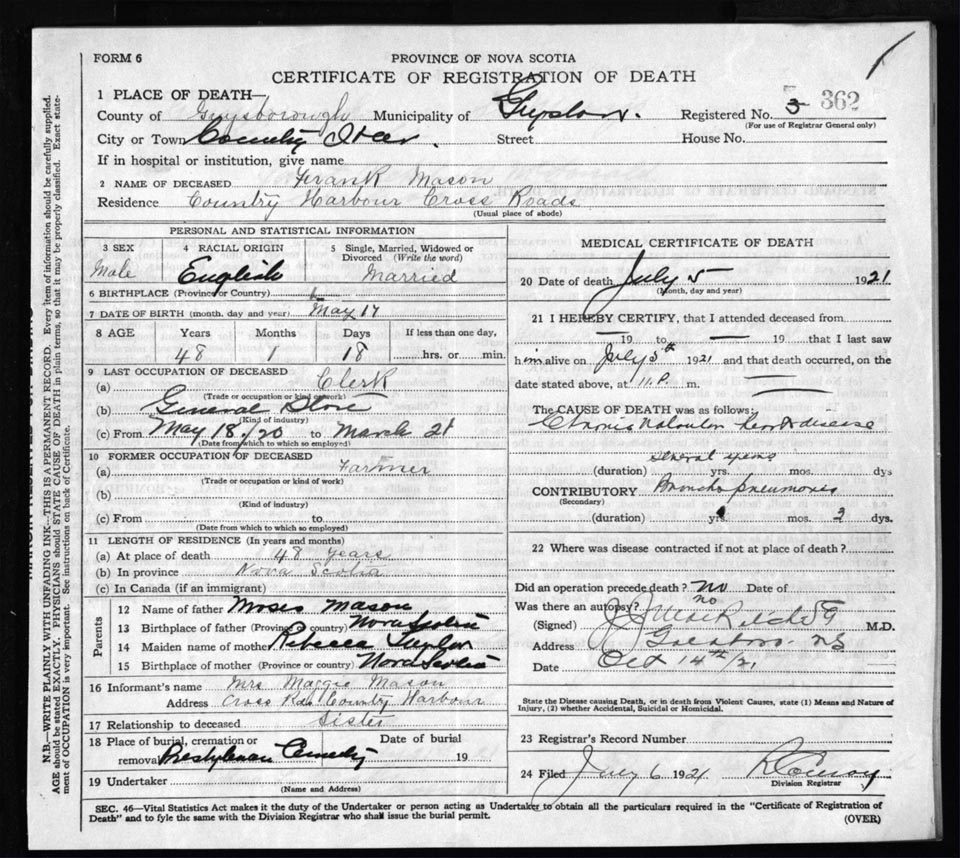 FORM 6
PROVINCE OF NOVA SCOTIA
CERTIFICATE OF REGISTRATION OF DEATH
1 PLACE OF DEATH—
County of Guysborough Municipality of Registered No. 3 362
(For use of Registrar General only)
City or Town Country Street House No.
If in hospital or institution, give name
2 NAME OF DECEASED Frank Mason
Residence Country Harbour Cross Roads
(Usual place of abode)
PERSONAL AND STATISTICAL INFORMATION
3 SEX 4 RACIAL ORIGIN 5 Single, Married, Widowed or Divorced (Write the word)
Male English Married
6 BIRTHPLACE (Province or Country)
7 DATE OF BIRTH (month, day and year) May 17
8 AGE Years Months Days If less than one day,
48 1 18 hrs. or min.
9 LAST OCCUPATION OF DECEASED
(a) Clerk
(Trade or occupation or kind of work)
(b) General Store
(Kind of industry)
(c) From May 18/20 to March 21
(Date from which to which so employed)
10 FORMER OCCUPATION OF DECEASED
(a) Farmer
(Trade or occupation or kind of work)
(b)
(Kind of industry)
(c) From to
(Date from which to which so employed)
11 LENGTH OF RESIDENCE (In years and months)
(a) At place of death 48 years
(b) In province Nova Scotia
(c) In Canada (if an immigrant)
Parents
12 Name of father Moses Mason
13 Birthplace of father (Province or country) Nova Scotia
14 Maiden name of mother Rebecca Taylor
15 Birthplace of mother (Province or country) Nova Scotia
16 Informant's name Mrs Maggie Mason
Address Cross Rds Country Harbour
17 Relationship to deceased Sister
18 Place of burial, cremation or Date of burial
removal Presbyterian Cemetry 19
19 Undertaker
(Name and Address)
MEDICAL CERTIFICATE OF DEATH
20 Date of death July 5 1921
(Month, day and year)
21 I HEREBY CERTIFY, that I attended deceased from
— 19 to — 19 that I last saw
him alive on July 5th 1921 and that death occurred, on the
date stated above, at 11 P. m.
The CAUSE OF DEATH was as follows:
Chronic Valvular heart disease
several years
(duration) yrs. mos. dys
CONTRIBUTORY Broncho pneumonia
(Secondary)
(duration) yrs. mos. 3 dys.
22 Where was disease contracted if not at place of death?
Did an operation precede death? no Date of
Was there an autopsy? no
(Signed) M.D.
Address NS
Date Oct 14th/21
State the Disease causing Death, or in death from Violent Causes, state (1) Means and Nature of
Injury, (2) whether Accidental, Suicidal or Homicidal.
23 Registrar's Record Number
24 Filed July 6 1921
Division Registrar
SEC. 46—Vital Statistics Act makes it the duty of the Undertaker or person acting as Undertaker to obtain all the particulars required in the "Certificate of Registration of
Death" and to fyle the same with the Division Registrar who shall issue the burial permit. (OVER)
N.B.—WRITE PLAINLY WITH UNFADING INK—THIS IS A PERMANENT RECORD. Every item of information should be carefully supplied.
AGE should be stated EXACTLY. PHYSICIANS should STATE CAUSE OF DEATH in plain terms, so that it may be properly classified. Exact state-
ment of OCCUPATION is very important. See instructions on back of Certificate.